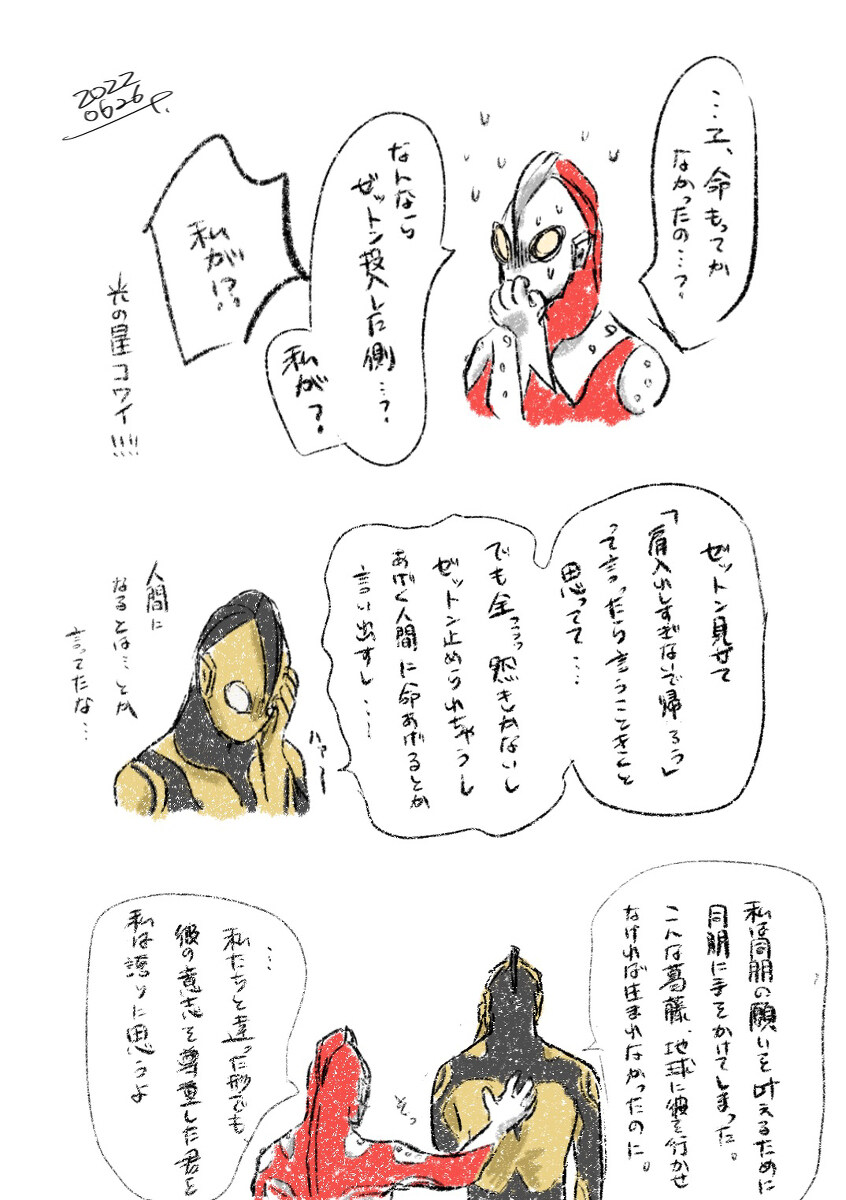 2022
0626
…エ、命もってか
なかったの…?
なんなら
ゼットン投入した側…?
私が?
私が!?
光の星コワイ!!!!
ゼットン見せて
「肩入れしすぎないで帰ろう」
って言ったら言うこときくと
思ってて…
でも全っっっ然きかないし
ゼットン止められちゃうし
あげく人間に命あげるとか
言い出すし…
ハァー
人間に
なるとは…とか
言ってたな…
私は同朋の願いを叶えるために
同朋に手をかけてしまった。
こんな葛藤、地球に彼を行かせ
なければ生まれなかったのに。
そっ
…
私たちと違った形でも
彼の意志を尊重した君を
私は誇りに思うよ